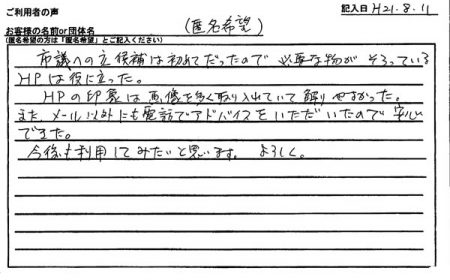 ご利用者の声
記入日 H21.8.11
お客様の名前or団体名
(匿名希望の方は「匿名希望」とご記入ください)
(匿名希望)
市議への立候補は初めてだったので 必要な物が そろっている
HPは役に立った。
HPの印象は画像を多く取り入れていて解りやすかった。
また、メール以外にも電話でアドバイスをいただいたので安心
できた。
今後も利用してみたいと思います。 よろしく。